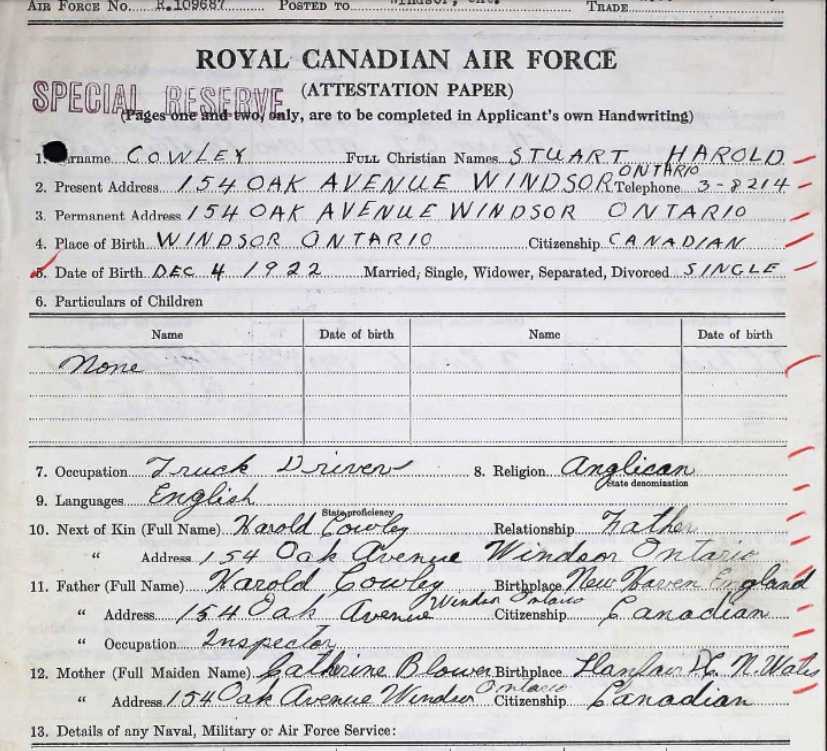 AIR FORCE NO. R.109687 POSTED TO Windsor, Ont. TRADE
ROYAL CANADIAN AIR FORCE
SPECIAL RESERVE
(ATTESTATION PAPER)
(Pages one and two, only, are to be completed in Applicant's own Handwriting)
1. urname COWLEY FULL Christian Names STUART HAROLD
2. Present Address 154 OAK AVENUE WINDSOR ONTARIO Telephone 3-8214
3. Permanent Address 154 OAK AVENUE WINDSOR ONTARIO
4. Place of Birth WINDSOR ONTARIO Citizenship CANADIAN
5. Date of Birth DEC 4 1922 Married, Single, Widower, Separated, Divorced SINGLE
6. Particulars of Children
Name Date of birth Name Date of birth
None
7. Occupation Truck Driver 8. Religion Anglican
State denomination
9. Languages English
State proficiency
10. Next of Kin (Full Name) Harold Cowley Relationship Father
" Address 154 Oak Avenue Windsor Ontario
11. Father (Full Name) Harold Cowley Birthplace New Haven England
" Address 154 Oak Avenue Windsor Ontario Citizenship Canadian
" Occupation Inspector
12. Mother (Full Maiden Name) Catherine Blower Birthplace Llanfair N. Wales
" Address 154 Oak Avenue Windsor Ontario Citizenship Canadian
13. Details of any Naval, Military or Air Force Service: